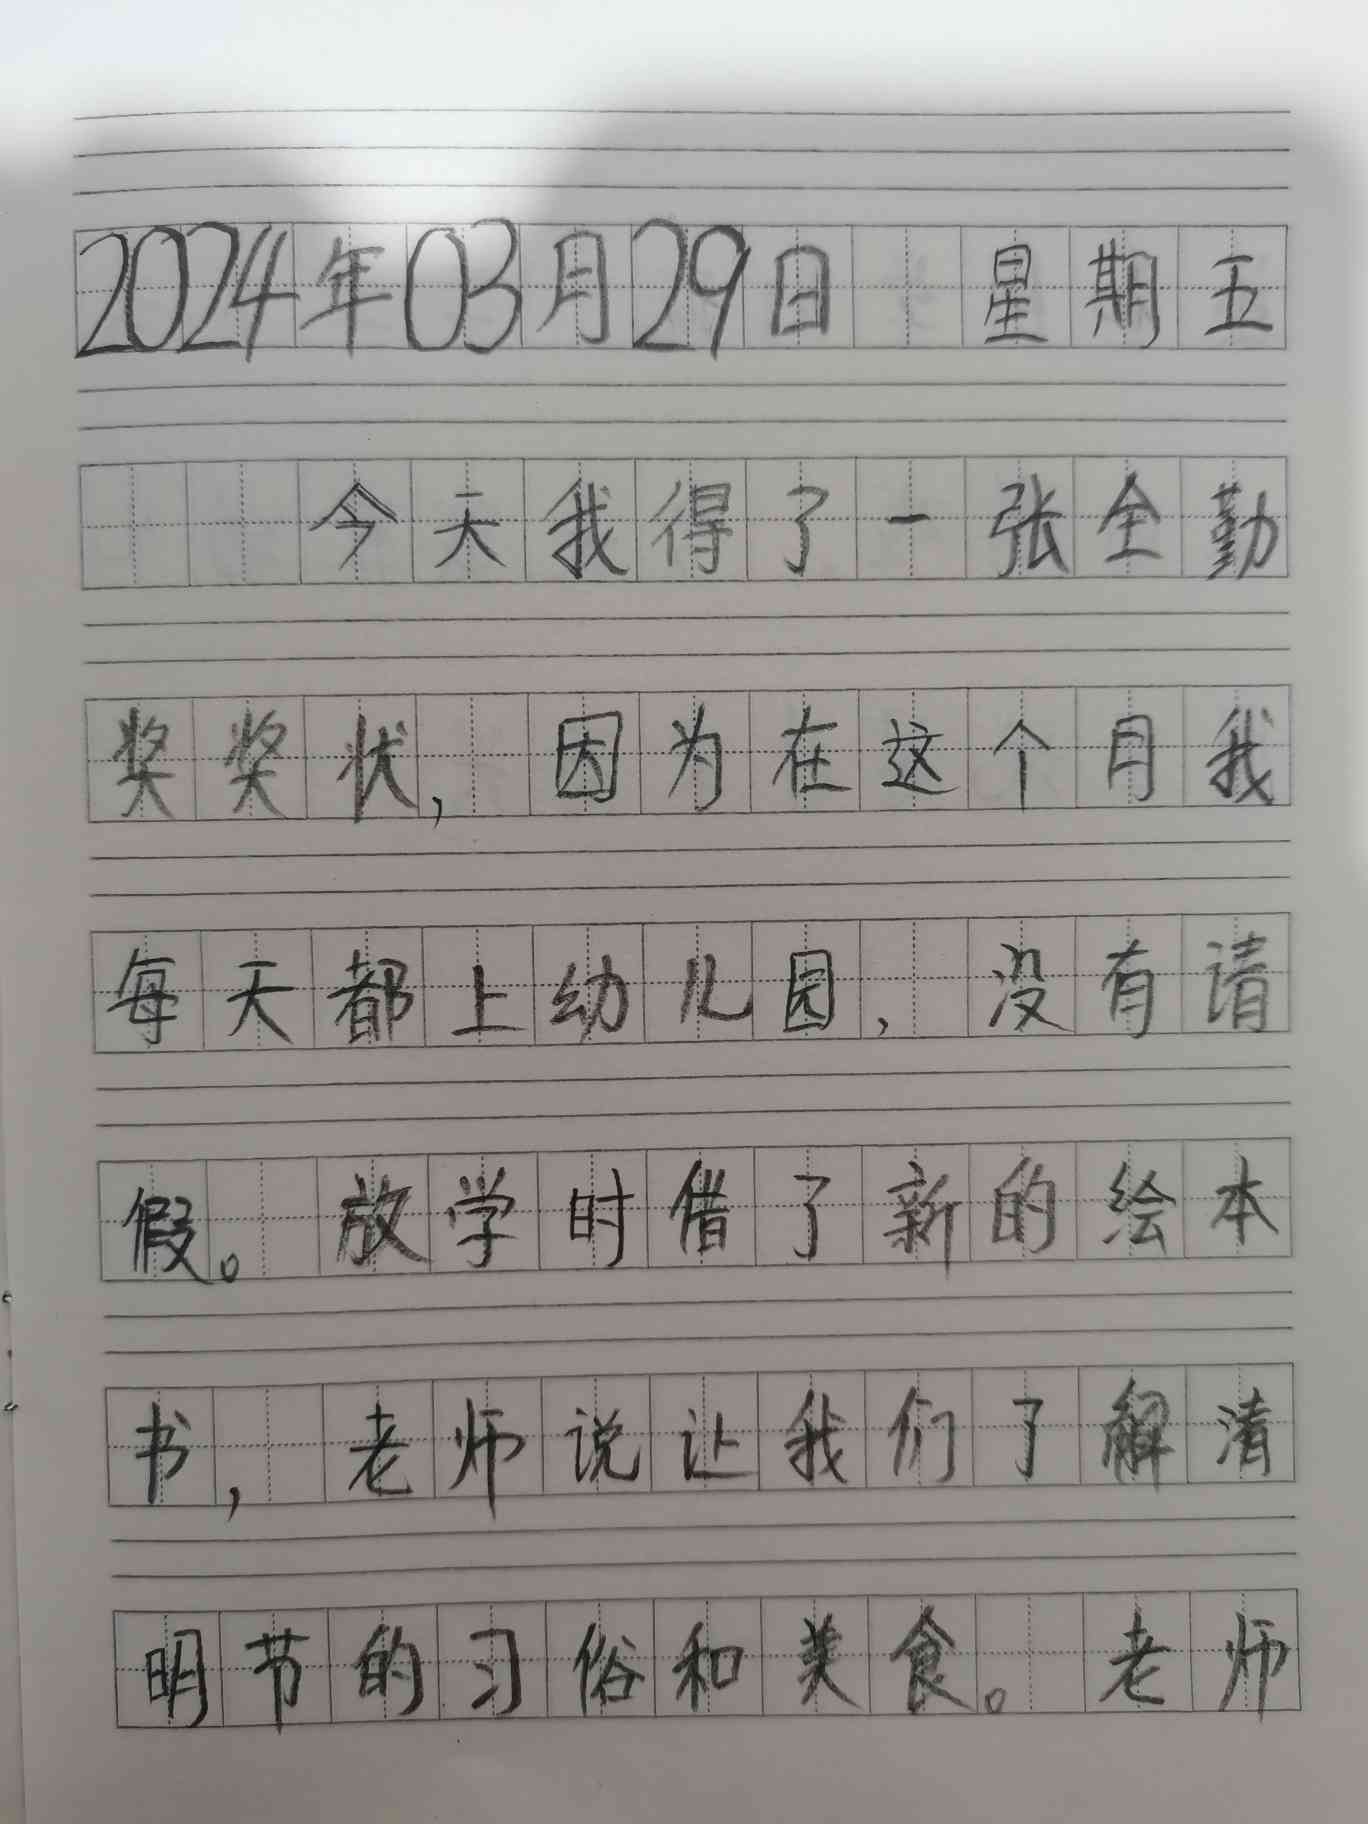 2024年03月29日 星期五
今天我得了一张全勤
奖奖状，因为在这个月我
每天都上幼儿园，没有请
假。放学时借了新的绘本
书，老师说让我们了解清
明节的习俗和美食。老师